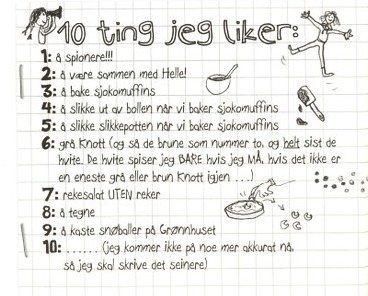 10 ting jeg liker:
1: å spionere!!!
2: å være sammen med Helle!
3: å bake sjokomuffins
4: å slikke ut av bollen når vi baker sjokomuffins
5: å slikke slikkepotten når vi baker sjokomuffins
6: grå Knott (og så de brune som nummer to, og helt sist de
hvite. De hvite spiser jeg BARE hvis jeg MÅ, hvis det ikke er
en eneste grå eller brun Knott igjen ...)
7: rekesalat UTEN reker
8: å tegne
9: å kaste snøballer på Grønnhuset
10: ...... (jeg kommer ikke på noe mer akkurat nå,
så jeg skal skrive det seinere)